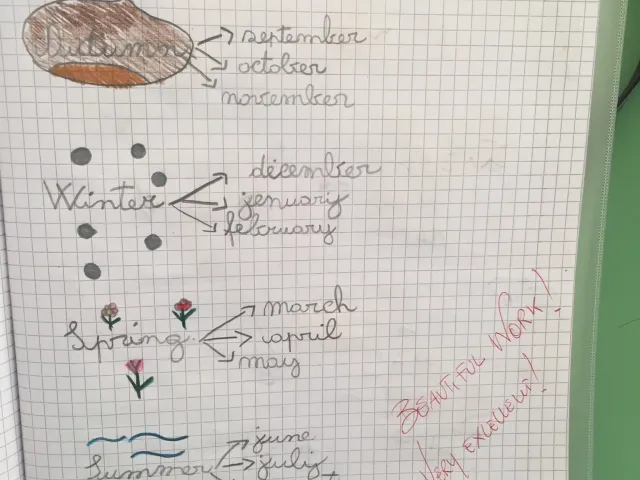 Autumn
september
october
november
Winter
december
jenuary
february
Spring
march
april
may
Summer
june
july
BEAUTIFUL WORK!
VERY EXCELLENT!